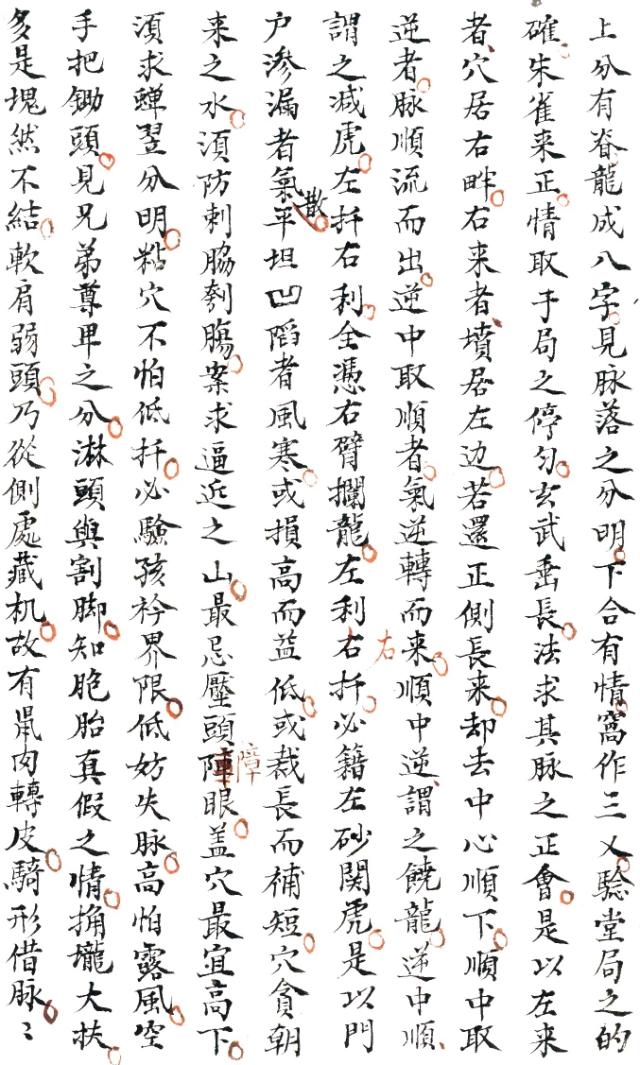 上分有脊龍成八字見脉落之分明下合有情窩作三乂騐堂局之的
確朱雀来正情取于局之停匀玄武垂長法求其脉之正會是以左来
者穴居右畔右来者墳居左边若還正側長来却去中心順下順中取
逆者脉順流而出逆中取順者氣逆轉而来順中逆謂之饒龍逆中順
謂之减虎左扦右利全憑右臂攔龍左利右扦必籍左砂関虎是以門
户渗漏者氣散平坦凹陷者風寒或損高而益低或裁長而補短穴貪朝
来之水湏防刺脇刳膓案求逼近之山最忌壓頭障眼盖穴最宜高下
湏求蟬翌分明粘穴不怕低扦必驗孩衿界限低妨失脉高怕露風空
手把鋤頭見兄弟尊卑之分淋頭與割脚知胞胎真假之情捅壠大扶
多是塊然不結軟肩弱頭乃從側處藏机故有鼡肉轉皮騎形借脉〻